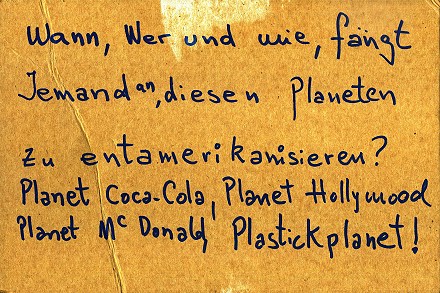 Wann, Wer und wie, fängt
Jemand an, diesen Planeten
zu entamerikanisieren?
Planet Coca-Cola, Planet Hollywood
Planet Mc Donald, Plastickplanet!